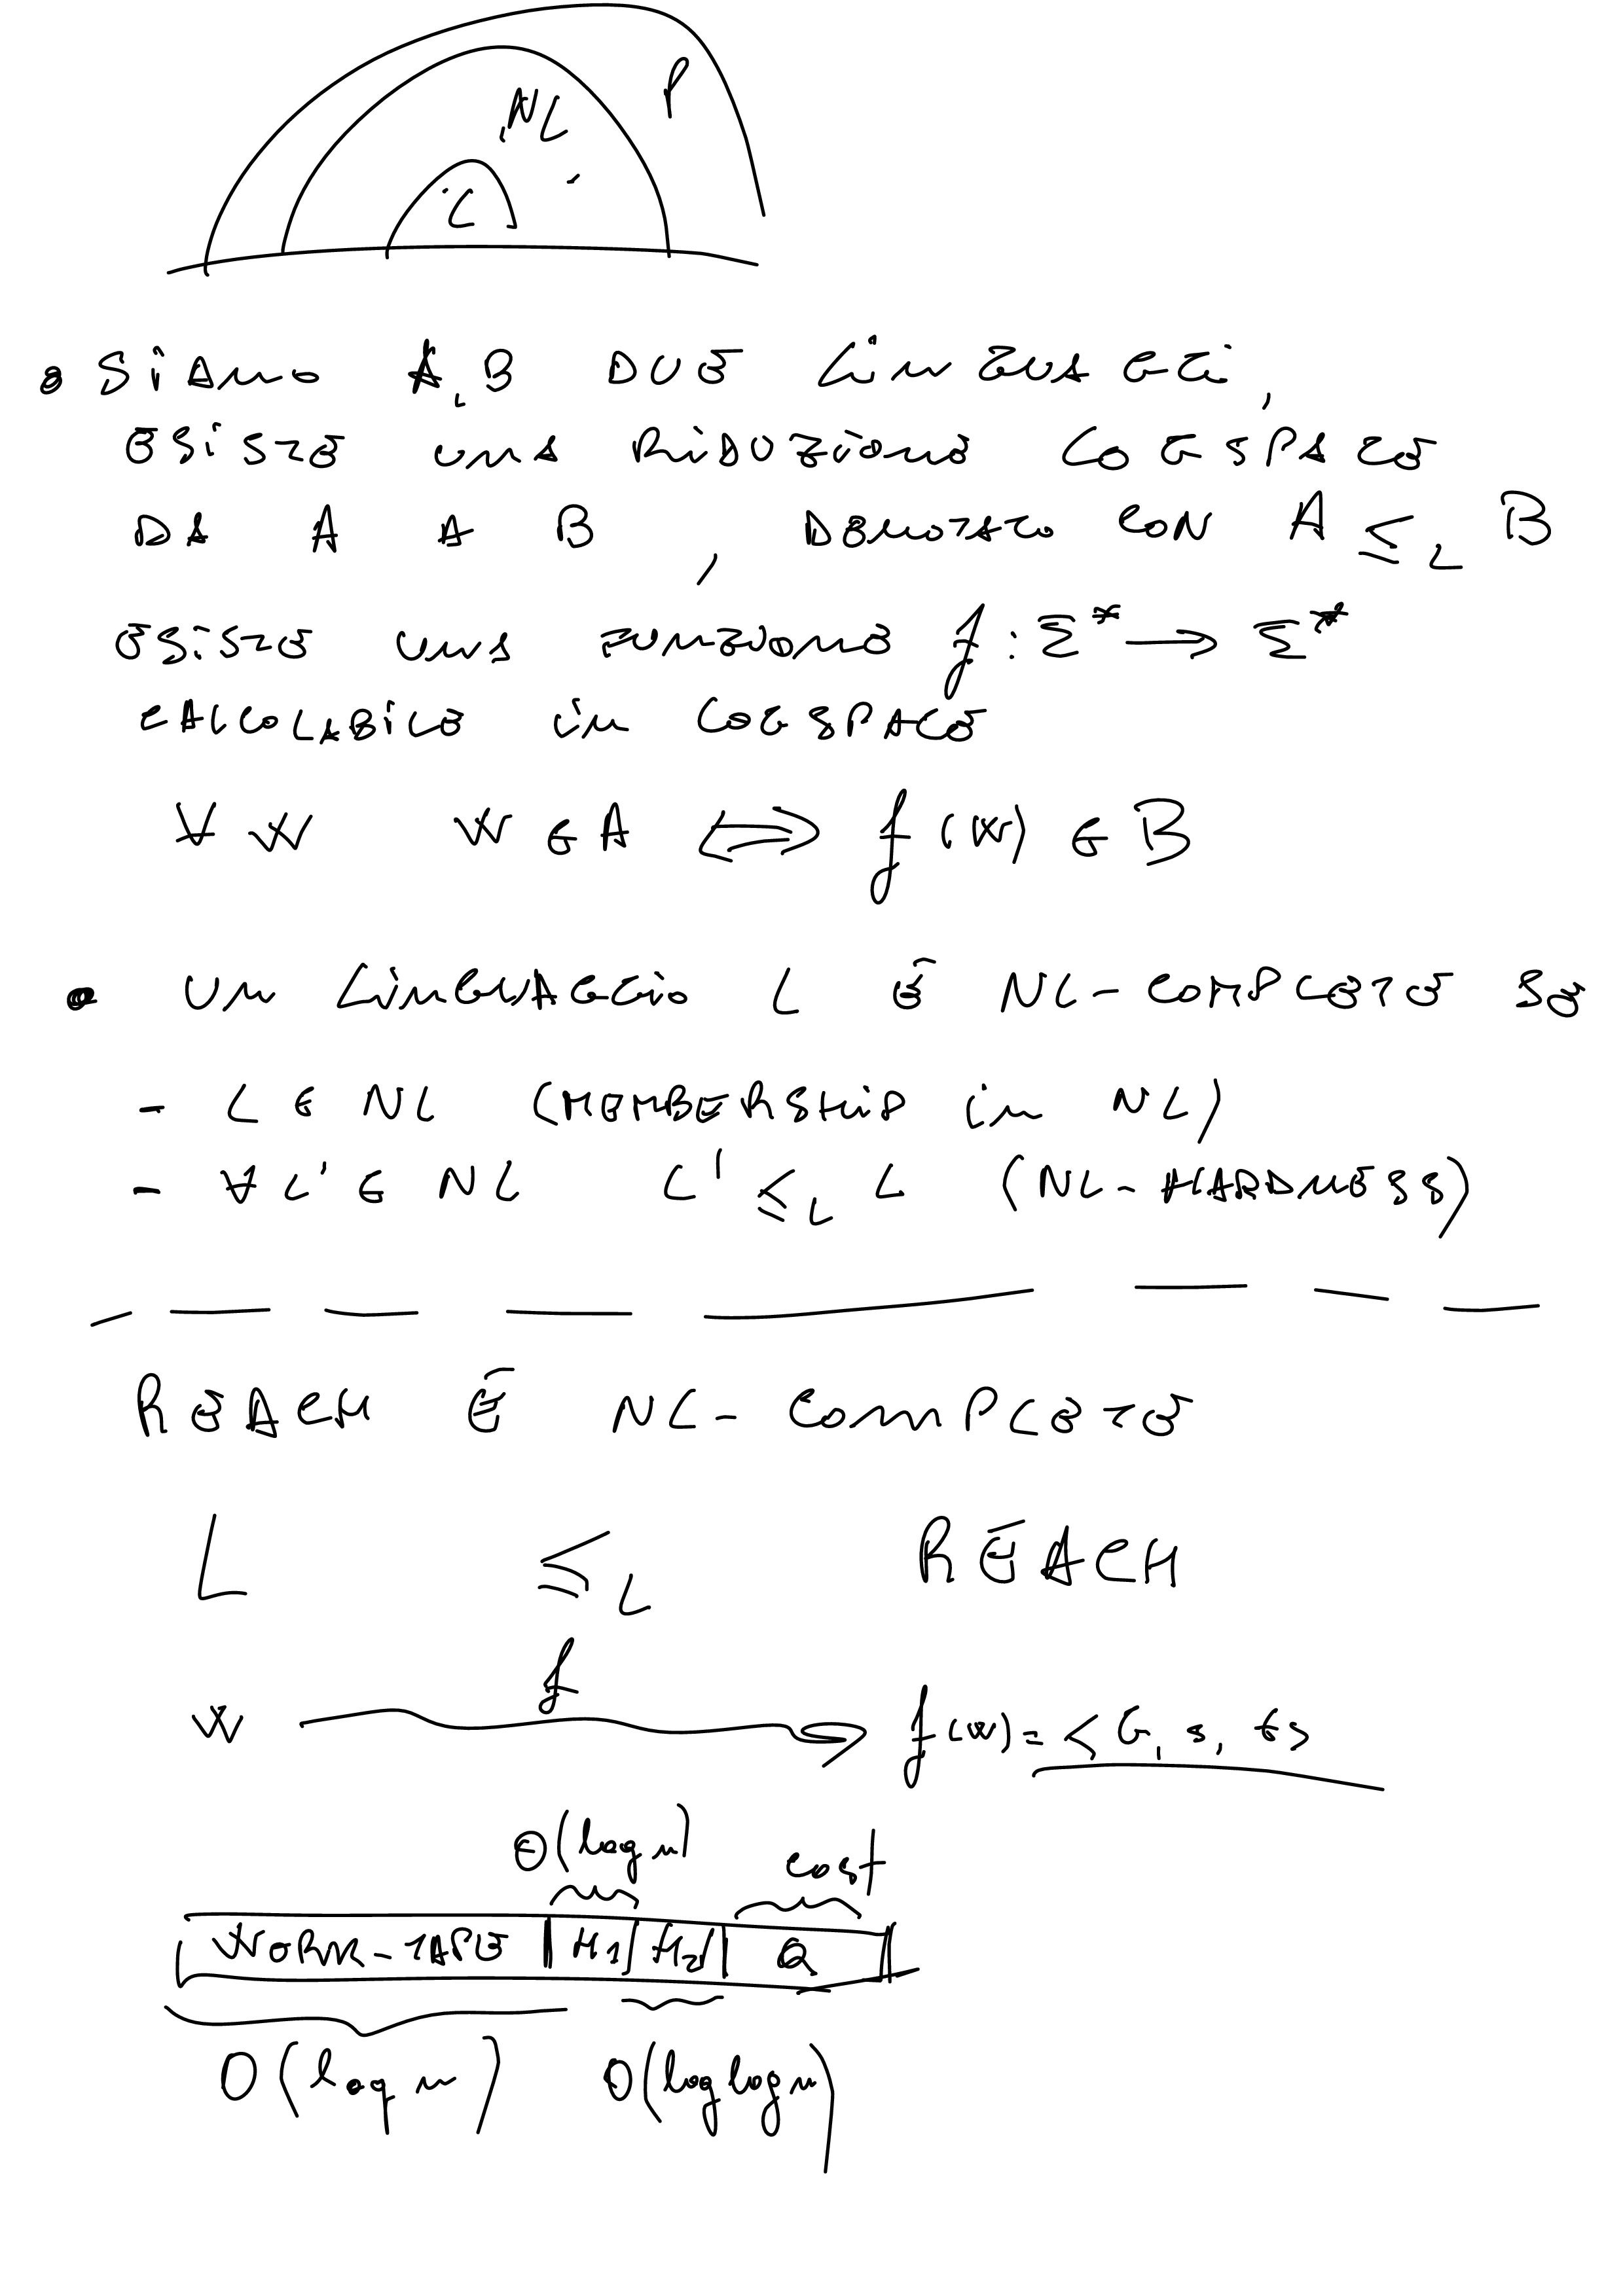 P
NL
L
• SIANO A, B DUE LINGUAGGI,
ESISTE UNA RIDUZIONE LOGSPACE
DA A A B, DENOTATO CON A ≤_L B
ESISTE UNA FUNZIONE f : Σ* → Σ*
CALCOLABILE IN LOGSPACE
∀ W W ∈ A ⟺ f(W) ∈ B
• UN LINGUAGGIO L È NL-COMPLETE SE
- L ∈ NL (MEMBERSHIP IN NL)
- ∀ L' ∈ NL L' ≤_L L (NL-HARDNESS)
REACH È NL-COMPLETE
L ≤_L REACH
f
W f(W) = <G, s, t>
O(log n) cost
WORK-TAPE | H1 | H2 | Q
O(log n) O(log log n)